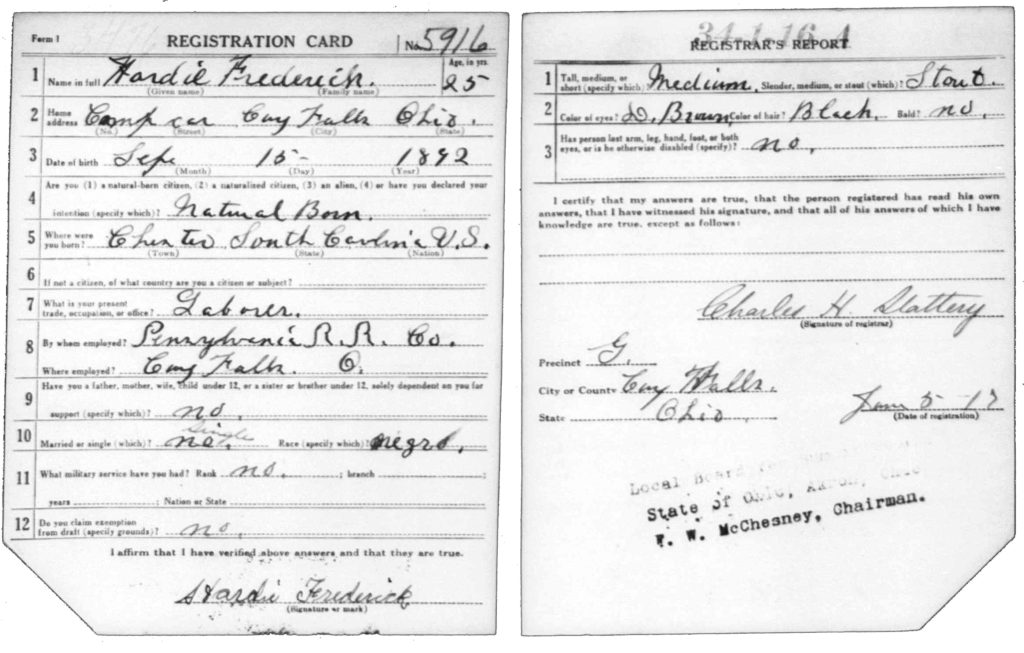 Form 1 REGISTRATION CARD No. 5916
1 Name in full Hardie Frederick. Age, in yrs. 25
(Given name) (Family name)
2 Home address Camp car Cuy Falls Ohio.
(No.) (Street) (City) (State)
3 Date of birth Sep 15 - 1892
(Month) (Day) (Year)
4 Are you (1) a natural-born citizen, (2) a naturalized citizen, (3) an alien, (4) or have you declared your
intention (specify which)? Natural Born.
5 Where were you born? Chester South Carolina U.S.
(Town) (State) (Nation)
6 If not a citizen, of what country are you a citizen or subject?
7 What is your present trade, occupation, or office? Laborer.
8 By whom employed? Pennsylvania R. R. Co.
Where employed? Cuy Falls. O.
9 Have you a father, mother, wife, child under 12, or a sister or brother under 12, solely dependent on you for
support (specify which)? no.
Single
10 Married or single (which)? no. Race (specify which)? negro.
11 What military service have you had? Rank no. ; branch ;
years ; Nation or State
12 Do you claim exemption from draft (specify grounds)? no.
I affirm that I have verified above answers and that they are true.
Hardie Frederick
(Signature or mark)
34-1-16 A
REGISTRAR'S REPORT
1 Tall, medium, or short (specify which)? Medium. Slender, medium, or stout (which)? Stout.
2 Color of eyes? D. Brown Color of hair? Black. Bald? no.
3 Has person lost arm, leg, hand, foot, or both eyes, or is he otherwise disabled (specify)? no.
I certify that my answers are true, that the person registered has read his own
answers, that I have witnessed his signature, and that all of his answers of which I have
knowledge are true, except as follows:
Charles H. Slattery
(Signature of registrar)
Precinct G.
City or County Cuy Falls.
State Ohio June 5 - 17
(Date of registration)
Local Board for
State of Ohio, Akron, Ohio
F. W. McChesney, Chairman.